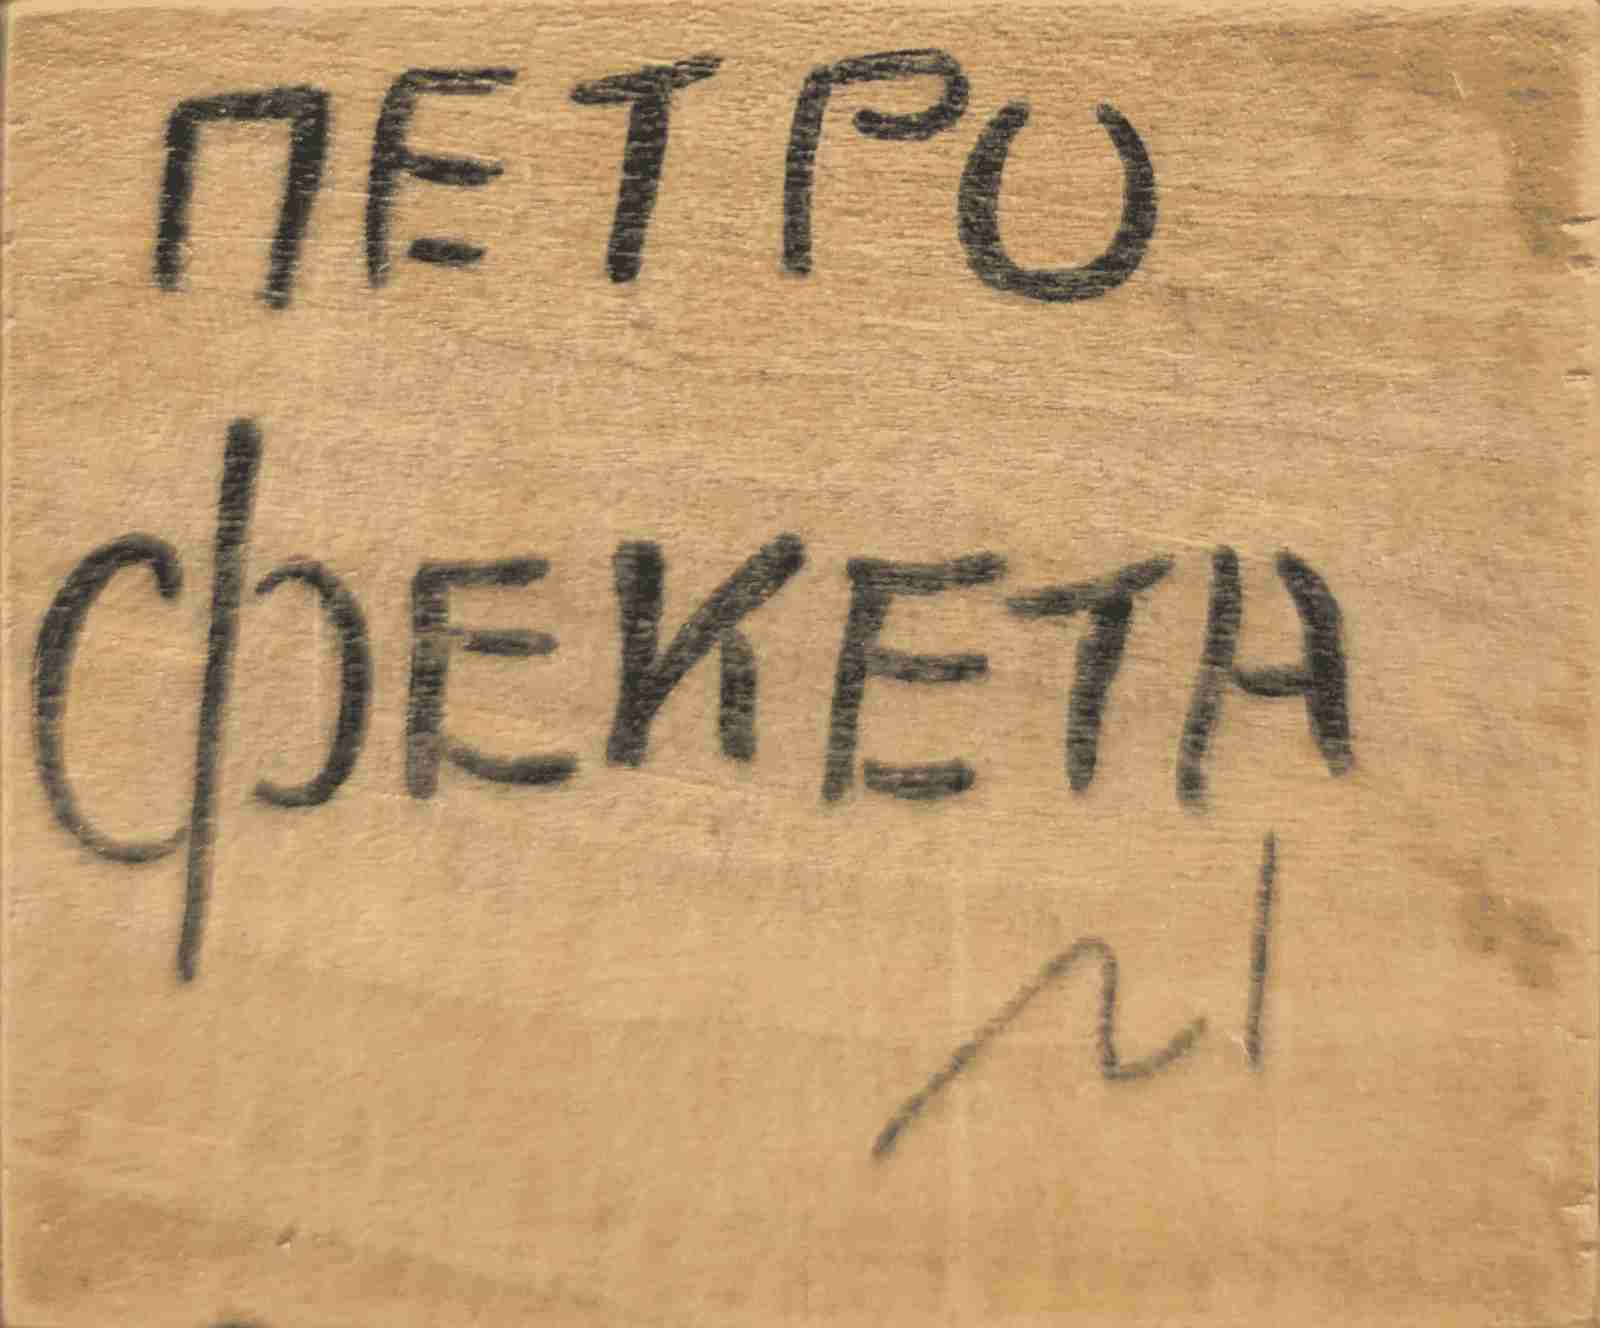 ПЕТРО
ФЕКЕТА